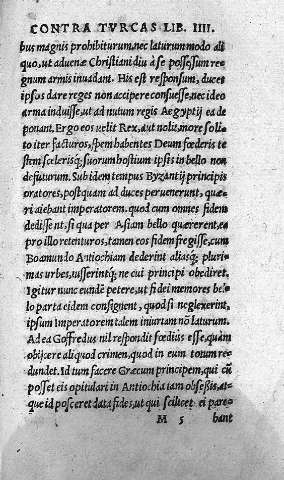 CONTRA TVRCAS LIB. IIII.
bus magnis prohibiturum, nec laturum modo ali
quo, ut aduenæ Christiani diu à se possessum re
gnum armis inuadant. His est responsum, duces
ipsos dare reges non accipere consuesse, nec ideo
arma induisse, ut ad nutum regis Aegyptij ea de
ponant. Ergo eos uelit Rex, aut nolit, more soli
to iter facturos, spem habentes Deum fœderis te
stem scelerisq; suorum hostium ipsis in bello non
defuturum. Sub idem tempus Byzantij principis
oratores, postquam ad duces peruenerunt, quæ-
ri aiebant imperatorem, quod cum omnes fidem
dedissent, si qua per Asiam bello quærerent, ea
pro illo retenturos, tamen eos fidem fregisse, cum
Boamundo Antiochiam dederint aliasq; pluri-
mas urbes, iusserintq; ne cui principi obediret.
Igitur nunc eundē petere, ut fidei memores bel-
lo parta eidem consignent, quod si neglexerint,
ipsum Imperatorem talem iniuriam nō laturum.
Ad ea Goffredus nil respondit fœdius esse, quàm
obijcere aliquod crimen, quod in eum totum re-
dundet. Id tum facere Græcum principem, qui cū
posset eis opitulari in Antiochia iam obsessis, at-
que id posceret data fides, ut qui scilicet ei pare-
M 5 bant